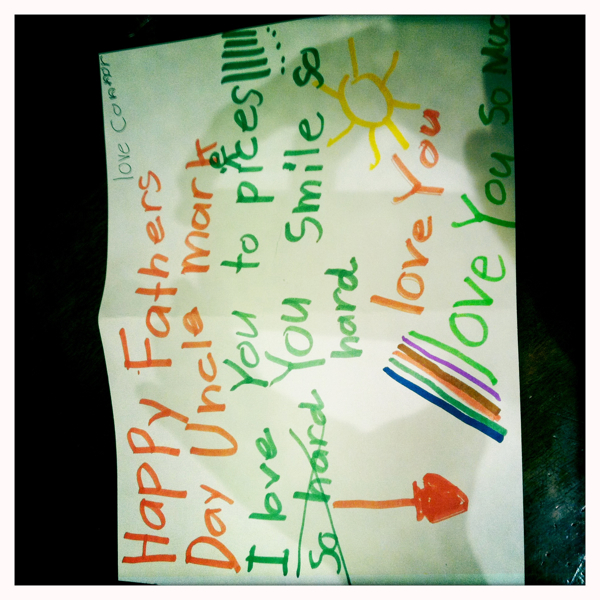 love Connor
Happy Fathers
Day Uncle mark
I love You to pieces!!!!!!
So hard You Smile so
hard
love You
love You So Muc